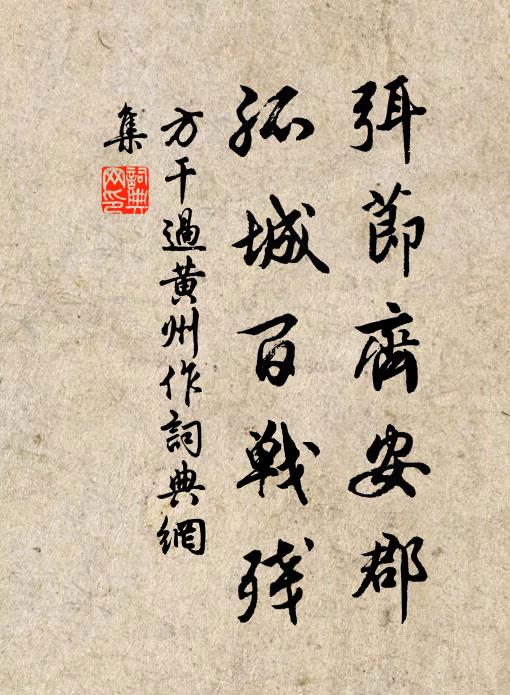 弭節齊安郡
孤城百戰殘
方干過黃州作詞典網
集
詞典
网印